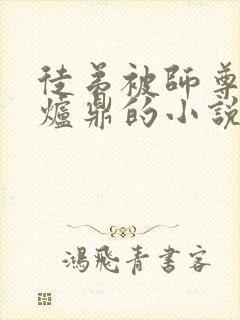 徒弟被師尊
爐鼎的小說
鴻飛青書客